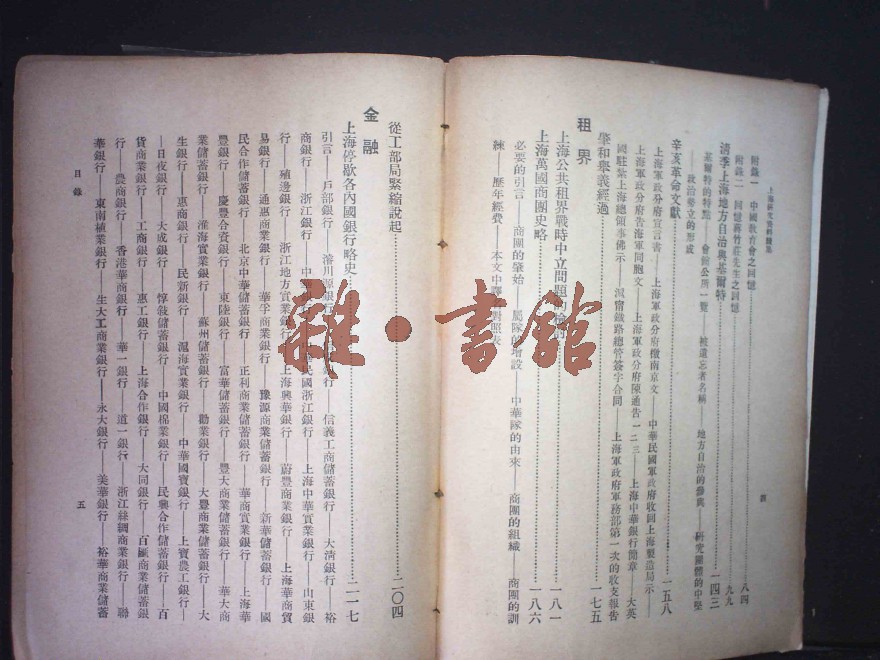 上海研究資料續集
四
附錄一 中國教育會之回憶……八四
附錄二 回憶蔣竹莊先生之回憶……九九
清季上海地方自治與基爾特……一四三
基爾特的特點——會館公所一覽——被遺忘者名稱——地方自治的參與——研究團體的中堅
——政治勢立的形成
辛亥革命文獻……一五八
上海軍政分府宣言書——上海軍政分府檄南京文——中華民國軍政府收回上海製造局示——
上海軍政分府告海軍同胞文——上海軍政分府陳通告一二三——上海中華銀行簡章——大英
國駐紮上海總領事佛示——滬甯鐵路總管簽字合同——上海軍政府軍務部第一次的收支報告
肇和舉義經過……一七五
租界
上海公共租界戰時中立問題……一八一
上海萬國商團史略……一八六
必要的引言——商團的肇始——屬隊的增設——中華隊的由來——商團的組織——商團的訓
練——歷年經費——本文中譯 對照表
從工部局緊縮說起……二〇四
金融
上海停歇各內國銀行略史……二一七
引言——戶部銀行——濬川源銀行——信義工商儲蓄銀行——大清銀行——裕
商銀行——浙江銀行——中華 民國浙江銀行——上海中華實業銀行——山東銀
行——殖邊銀行——浙江地方實業銀行——上海興華銀行——蔚豐商業銀行——上海華商貿
易銀行——通惠商業銀行——華孚商業銀行——豫源商業儲蓄銀行——新華儲蓄銀行——國
民合作儲蓄銀行——北京中華儲蓄銀行——正利商業儲蓄銀行——華商實業銀行——上海華
豐銀行——慶豐合資銀行——東陸銀行——富華儲蓄銀行——豐大商業儲蓄銀行——華大商
業儲蓄銀行——淮海實業銀行——蘇州儲蓄銀行——勸業銀行——大豐商業儲蓄銀行——大
生銀行——惠商銀行——民新銀行——滬海實業銀行——中華國寶銀行——上寶農工銀行—
—日夜銀行——大成銀行——惇敍儲蓄銀行——中國棉業銀行——民興合作儲蓄銀行——百
貨商業銀行——工商銀行——惠工銀行——上海合作銀行——大同銀行——百匯商業儲蓄銀
行——農商銀行——香港華商銀行——華一銀行——道一銀行——浙江絲綢商業銀行——聯
華銀行——東南植業銀行——生大工商業銀行——永大銀行——美華銀行——裕華商業儲蓄
目錄
五
雜·書館